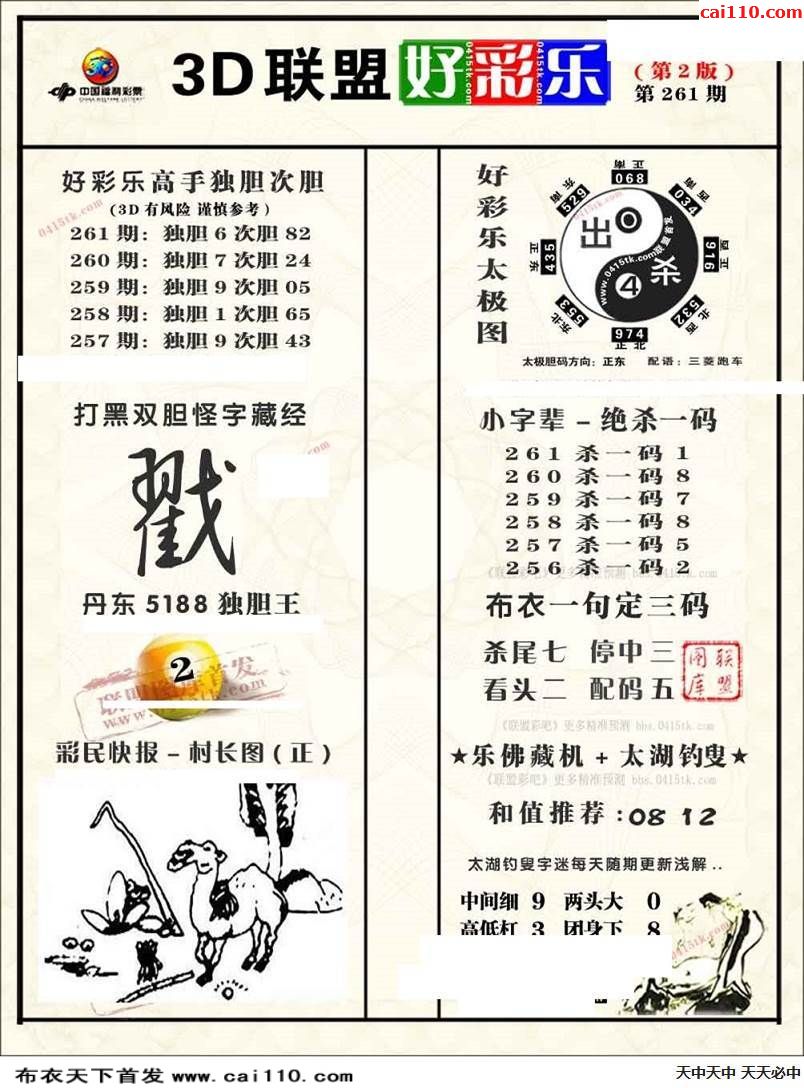 cai110.com
中国福利彩票
CHINA WELFARE LOTTERY
3D联盟好彩乐
0415tk.com
(第2版)
第261期
好彩乐高手独胆次胆
(3D有风险 谨慎参考)
0415tk.com
261期: 独胆6次胆82
260期: 独胆7次胆24
259期: 独胆9次胆05
258期: 独胆1次胆65
257期: 独胆9次胆43
打黑双胆怪字藏经
戳
丹东5188独胆王
2
彩民快报-村长图(正)
好彩乐太极图
正南
068
东南
529
西南
034
正东
435
正西
916
东北
553
西北
532
974
正北
出0
杀4
www.0415tk.com联盟首发
太极胆码方向: 正东 配语: 三菱跑车
小字辈-绝杀一码
261杀一码1
260杀一码8
259杀一码7
258杀一码8
257杀一码5
256杀一码2
《联盟彩吧》更多精准预测 bbs.0415tk.com
布衣一句定三码
杀尾七 停中三
看头二 配码五
联盟图库
《联盟彩吧》更多精准预测 bbs.0415tk.com
★乐佛藏机+太湖钓叟★
《联盟彩吧》更多精准预测 bbs.0415tk.com
和值推荐:08 12
太湖钓叟字迷每天随期更新浅解..
中间细 9 两头大 0
高低杠 3 团身下 8
0415tk.com
布衣天下首发 www.cai110.com
天中天中 天天必中